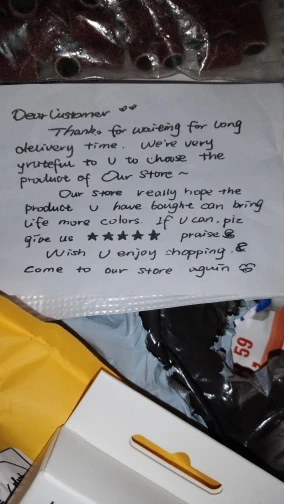 Dear Customer
Thanks for waiting for long
delivery time. We're very
grateful to U to choose the
product of Our Store ~
Our store really hope the
product U have bought can bring
life more colors. If U can, plz
give us ★★★★★ praise
Wish U enjoy shopping.
Come to our store again
59